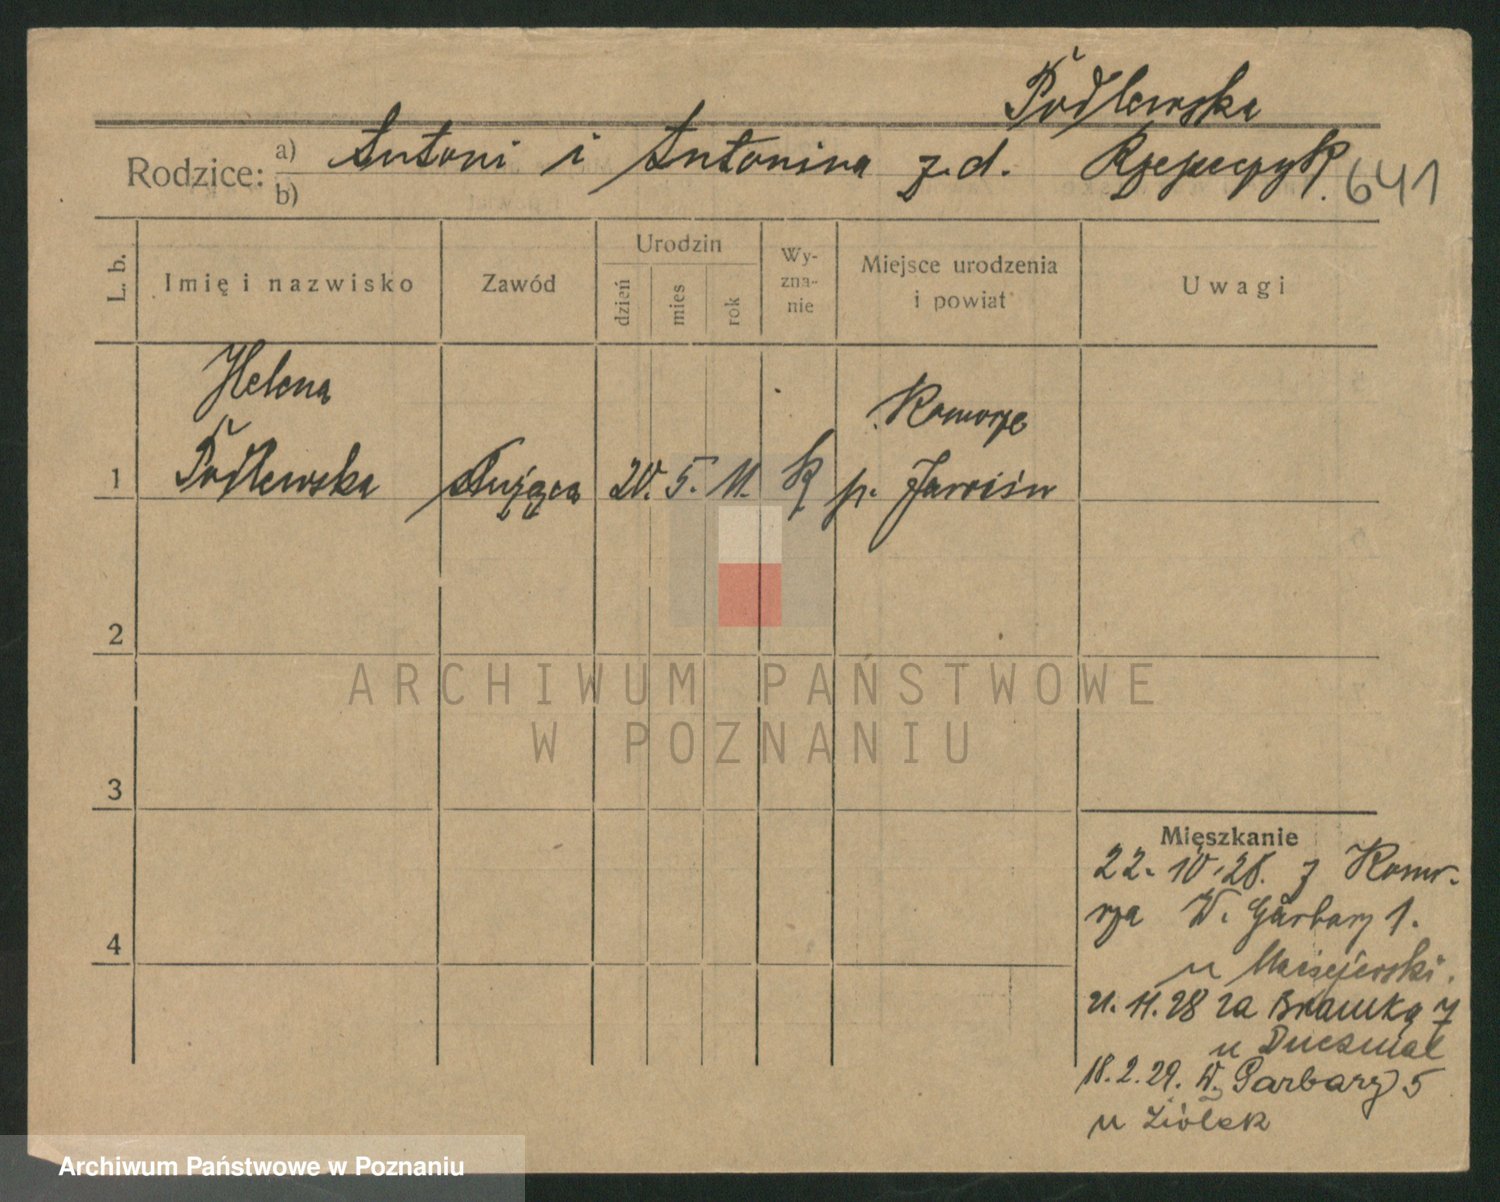 Podlewska
Rodzice: a) Antoni i Antonina z.d. Rzepczyk. 641
b)
L. b.
Imię i nazwisko
Zawód
Urodzin
dzień
mies
rok
Wy-
zna-
nie
Miejsce urodzenia
i powiat
Uwagi
Helena
Komorze
1 Podlewska służąca 20. 5. 11. K p. Jarocin
2
3
4
Mieszkanie
22. 10. 28. z Komo-
rza W. Garbary 1.
u Maciejewski.
21. 11. 28 za Bramką 7
u Duczmal
18. 2. 29. W. Garbary 5
u Ziółek
ARCHIWUM PAŃSTWOWE
W POZNANIU
Archiwum Państwowe w Poznaniu